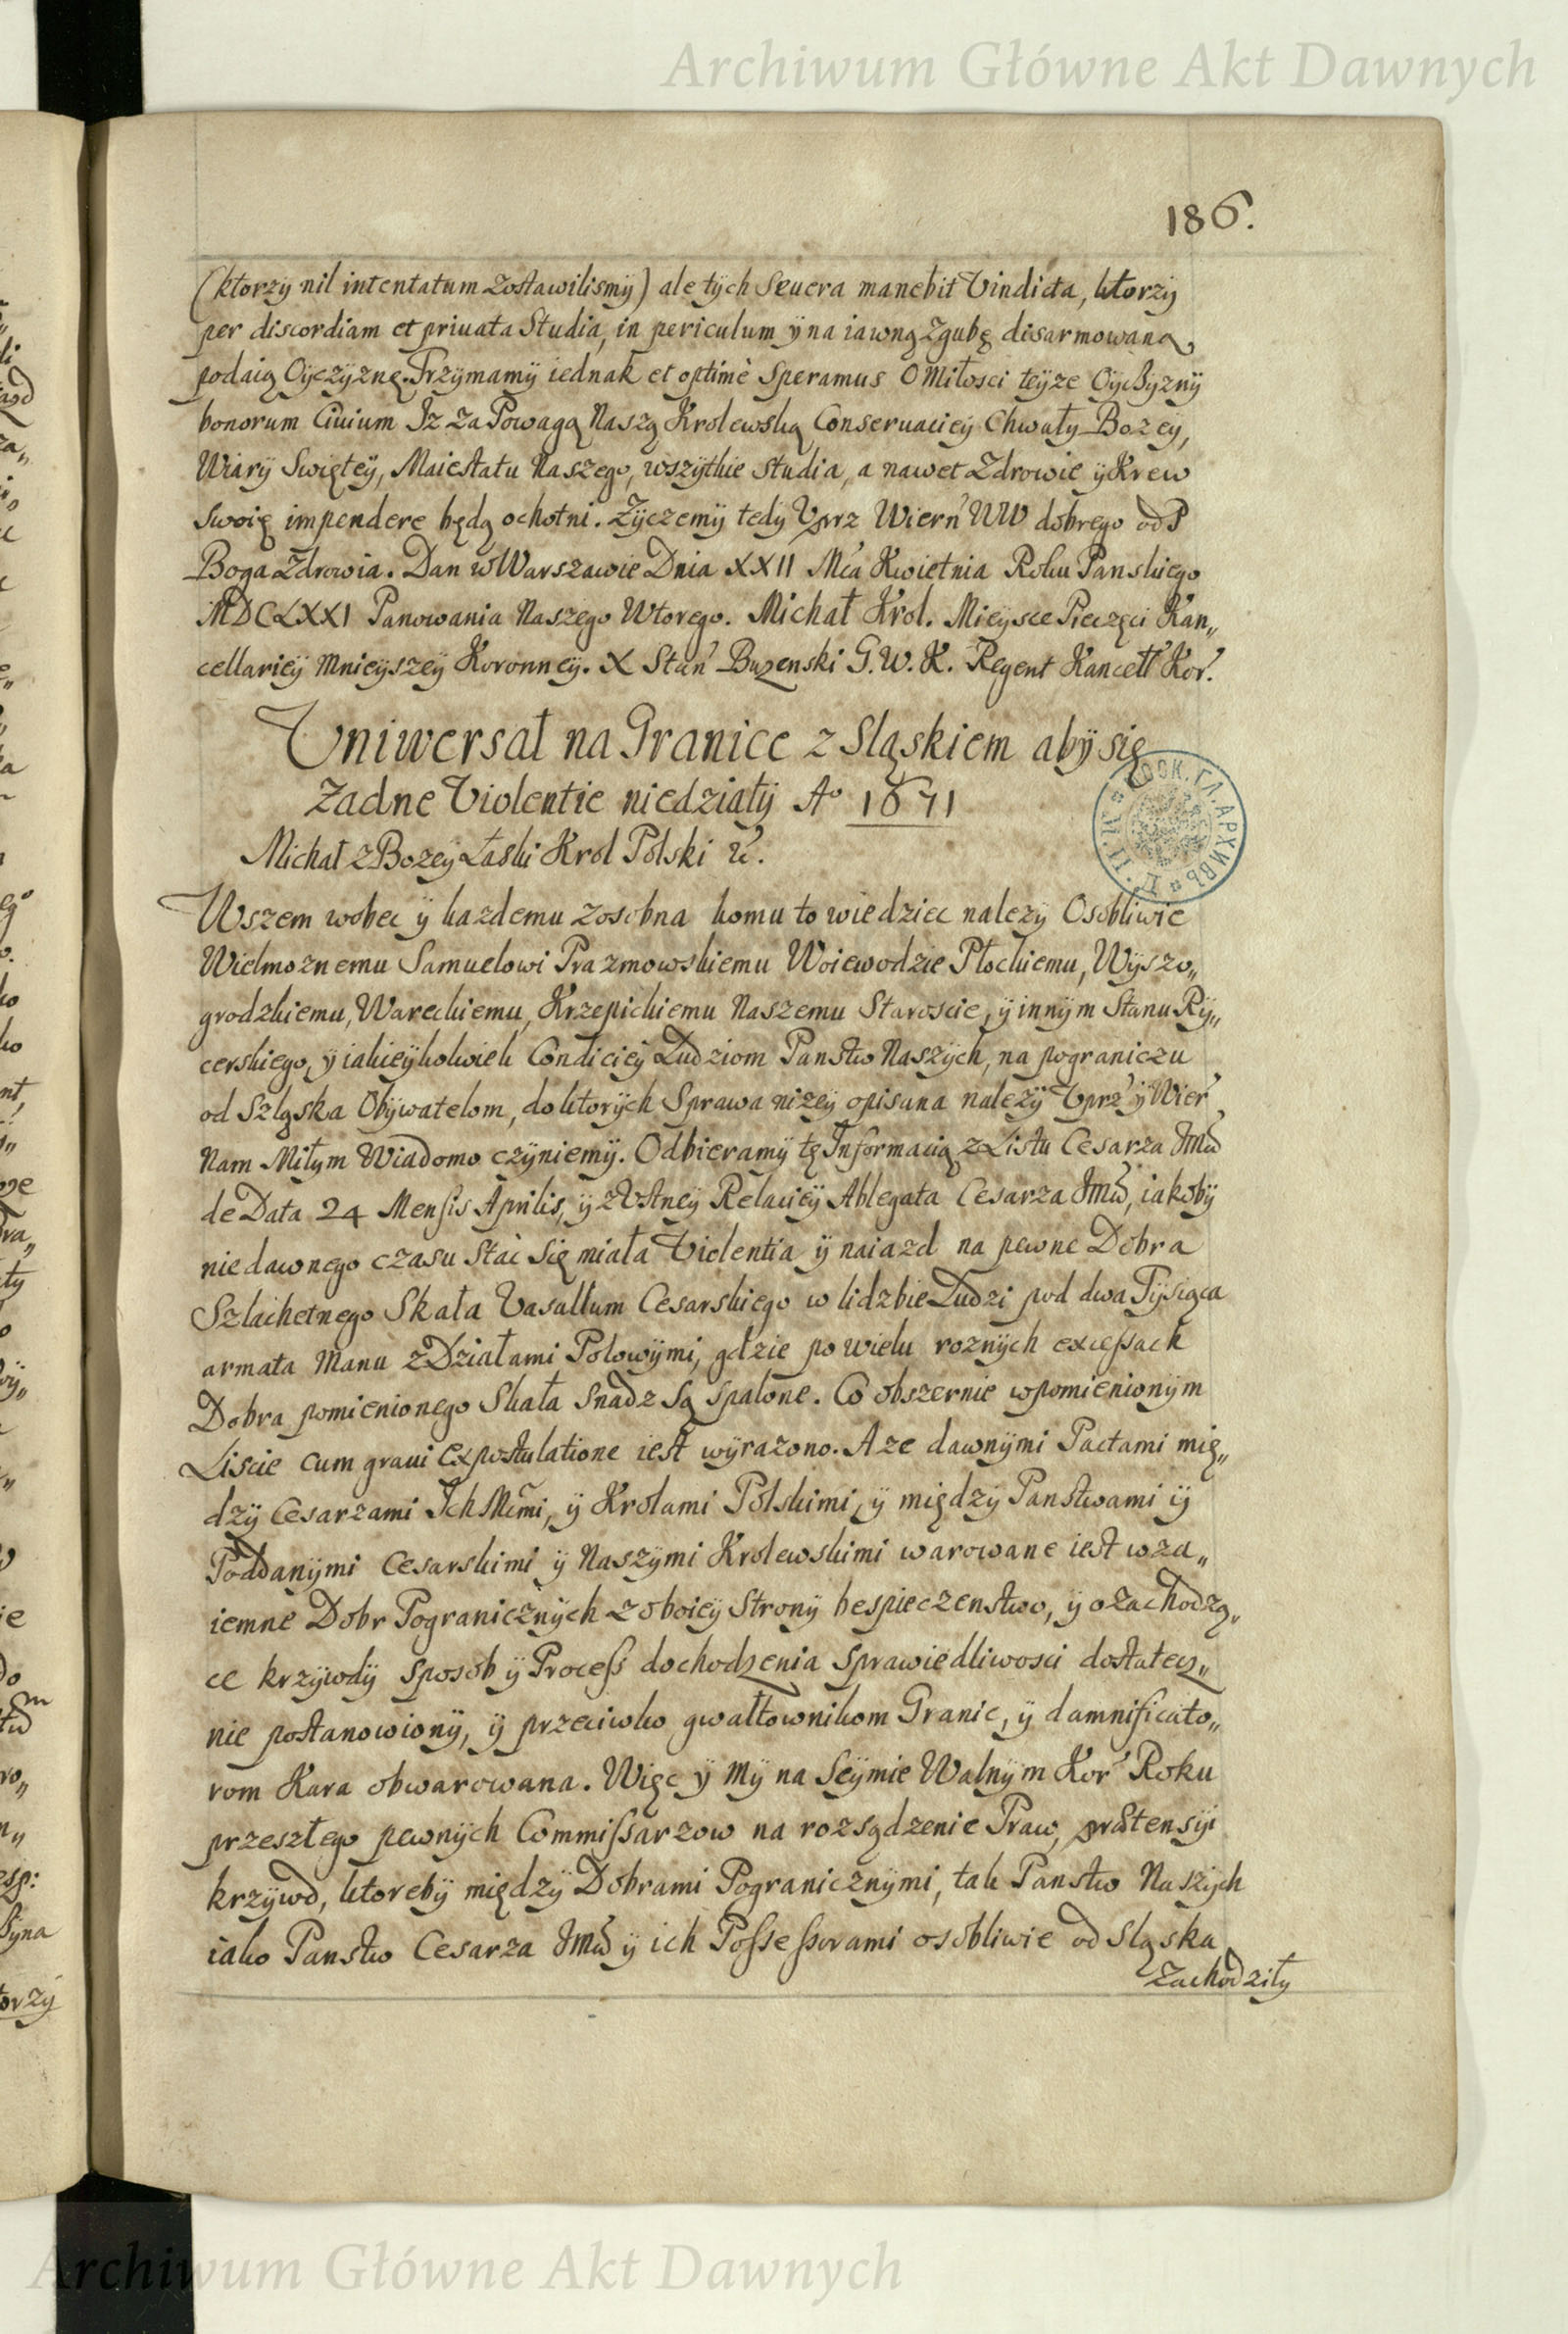 Archiwum Główne Akt Dawnych
186.
(ktorzy nil intentatum zostawilismÿ) ale tÿch Seuera manebit Vindicta, ktorzÿ
per discordiam et priuata Studia, in periculum ÿ na iawną zgubę disarmowaną
podaią Oÿczÿznę. Trzymamÿ iednak et optimè Speramus o Miłosci teÿze Oÿczÿznÿ
bonorum Ciuium Iz za Powagą Naszą Krolewską Conseruacieÿ Chwały Bozeÿ,
Wiarÿ Swięteÿ, Maiestatu Naszego, wszytkie studia, a nawet Zdrowie ÿ Krew
swoię impendere będą ochotni. Zÿczemÿ tedÿ Vprz Wiern̓ WW dobrego od P
Boga Zdrowia. Dan w Warszawie Dnia XXII Mca Kwietnia Roku Panskiego
MDCLXXI Panowania Naszego Wtorego. Michał Krol. Mieysce Pieczęci Kan„
cellarieÿ Mnieÿszeÿ Koronneÿ. X Stan̓ Buzenski G. W. K. Regent Kancell̓ Kor̓.
Uniwersał na Granice z Sląskiem abÿ się
zadne Violentie niedziałÿ Aº 1671
Michał z Bozeÿ Łaski Krol Polski &c̓.
Wszem wobec ÿ kazdemu zosobna komu to wiedziec nalezÿ Osobliwie
Wielmoznemu Samuelowi Prazmowskiemu Woiewodzie Płockiemu, Wÿszo„
grodzkiemu, Wareckiemu, Krzepickiemu Naszemu Staroscie, ÿ innÿm Stanu Rÿ„
cerskiego, ÿ iakieÿkolwiek Condicieÿ Ludziom Panstw Naszÿch, na pograniczu
od Szląska Obÿwatelom, do ktorÿch Sprawa nizeÿ opisana nalezÿ Vprz̓ ÿ Wier̓
Nam Miłym Wiadomo czÿniemÿ. Odbieramÿ tę Informacią z Listu Cesarza Jmści
de Data 24 Mensis Aprilis, ÿ z Vstneÿ Relacieÿ Ablegata Cesarza Jmści, iakobÿ
niedawnego czasu stać się miała Violentia ÿ naiazd na pewne Dobra
Szlachetnego Skała Vasallum Cesarskiego w lidzbie Ludzi pod dwa Tÿsiąca
armata Manu z Działami Polowÿmi, gdzie po wielu roznÿch excessach
Dobra pomienionego Skała snadz są spalone. Co obszernie w pomienionÿm
Liscie cum graui expostulatione iest wÿrazono. A ze dawnÿmi Pactami mię„
dzÿ Cesarzami Ich Mćmi, ÿ Krolami Polskimi, ÿ międzÿ Panstwami ÿ
Poddanÿmi Cesarskimi ÿ Naszÿmi Krolewskimi warowane iest wza„
iemne Dobr Pogranicznÿch z oboieÿ Stronÿ bespieczenstwo, ÿ o zachodzą„
ce krzÿwdÿ sposob ÿ Process dochodzenia Sprawiedliwosci dostatecz„
nie postanowionÿ, ÿ przeciwko gwałtownikom Granic, ÿ damnificato„
rom Kara obwarowana. Więc ÿ Mÿ na Seÿmie Walnÿm Kor̓ Roku
przeszłego pewnÿch Commissarzow na rozsądzenie Praw, prætensÿi
krzÿwd, ktorebÿ międzÿ Dobrami Pogranicznÿmi, tak Panstw Naszÿch
iako Panstw Cesarza Jmści ÿ ich Possessorami osobliwie od Sląska
zachodziły
Archiwum Główne Akt Dawnych